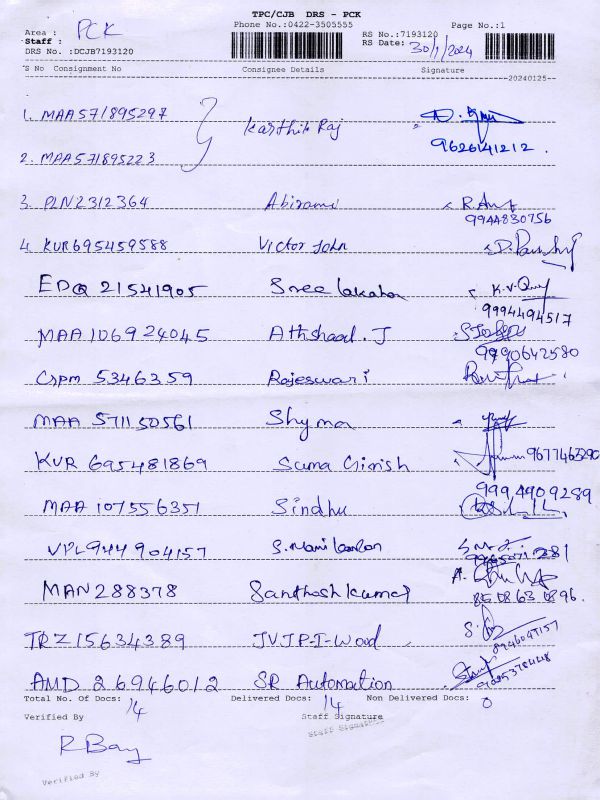 TPC/CJB DRS - PCK
Phone No.:0422-3505555 Page No.:1
Area : PCK
Staff :
DRS No. :DCJB7193120
RS No.:7193120
RS Date: 30/1/2024
S No Consignment No Consignee Details Signature
20240125
1. MAA571895297 Karthik Raj
9626141212.
2. MAA571895223
3. PLN2312364 Abirami
9944830756
4. KUR695459588 Victor John
EDQ 21541905 Sree
9994494517
MAA 106924045 Athshaad.J
9790642580
CSPM 5346359 Rajeswari
MAA 571150561 Shyma
KUR 695481869 Suma Girish 9677463290
MAA 107556351 Sindhu 9994909289
VPL944904157 S.Manikandan
MAN288378 Santhosh kumar
85 08 63 0896.
TRZ15634389 JVJP-I-Wood
8946047157
AMD 26946012 SR Automation
Total No. Of Docs: 14 Delivered Docs: 14 Non Delivered Docs: 0
Verified By Staff Signature
Staff Signature
R Bay
Verified By